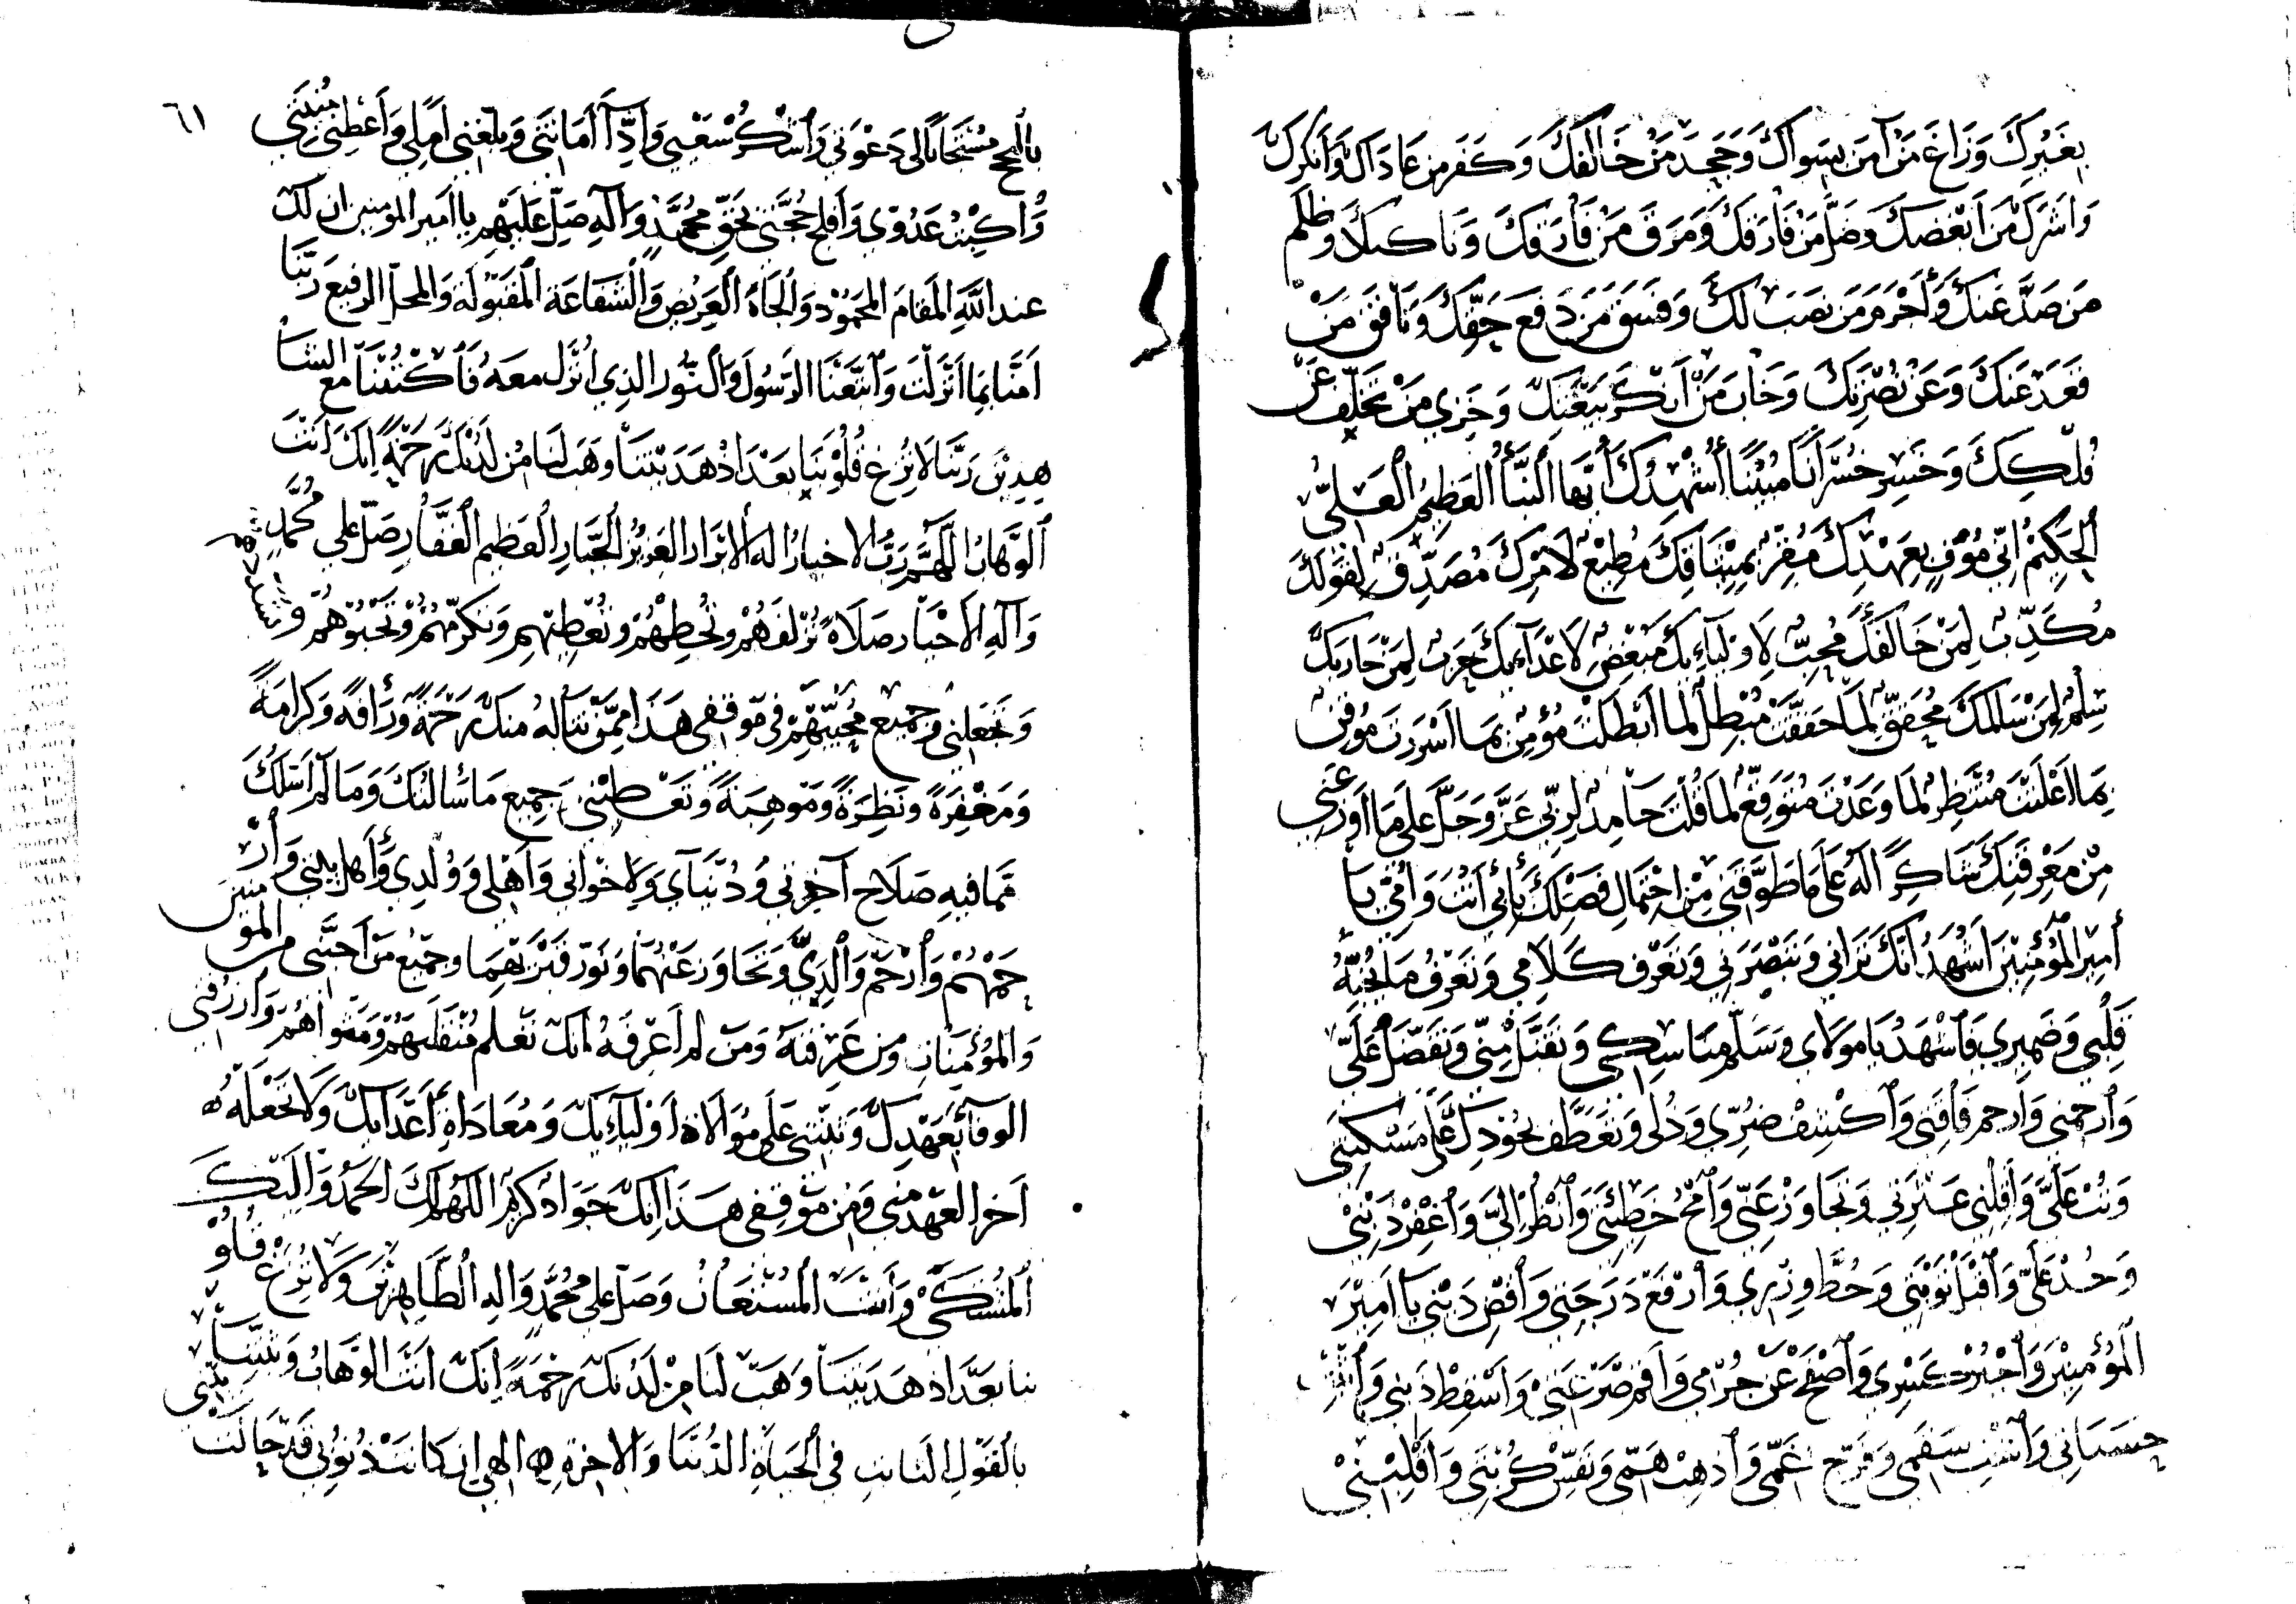 بِغَيْرِكَ وَزَاغَ مَنْ آمَنَ بِسِوَاكَ وَجَحِدَ مَنْ خَالَفَكَ وَكَفَرَ مَن عَادَاكَ وَأَنكَرَكَ
وَاَشْرَكَ مَنْ اَبْغَضَكَ وَضَلَّ مَنْ فَارَقَكَ وَمَرَقَ مَنْ فَارَقَكَ وَنَاكَبَكَ وَظَلَمَ
مَن صَدَّ عَنكَ وَأَجْرَمَ مَن نَصَبَ لَكَ وَفَسَقَ مَن دَفَعَ حَقَّكَ وَنَافَقَ مَنْ
قَعَدَ عَنكَ وَعَنْ نُصْرَتِكَ وَخَابَ مَنْ أَنكَرَ بَيْعَتَكَ وَخَزِيَ مَنْ تَخَلَّفَ عَنْ
فُلْكِكَ وَخَسِرَ خُسْرَانًا مُبِينًا أُشْهِدُكَ أَيُّهَا النَّبَأُ العَظِيمُ العَلِيُّ
الحَكِيمُ اِنِّي مُوْفٍ بِعَهْدِكَ مُقِرٌّ بِمِيثَاقِكَ مُطِيعٌ لِاَمْرِكَ مُصَدِّقٌ لِقَولِكَ
مُكَذِّبٌ لِمَنْ خَالَفَكَ مُحِبٌّ لِاَوْلِيَآءِكَ مُبْغِضٌ لِاَعْدَآءِكَ حَرْبٌ لِمَنْ حَارَبَكَ
سِلْمٌ لِمَنْ سَالَمَكَ مُحَقِّقٌ لِمَا حَقَّقْتَ مُبْطِلٌ لِمَا اَبْطَلْتَ مُؤْمِنٌ بِمَا اَسْرَرْتَ مُوقِنٌ
بِمَا اَعْلَنْتَ مُنْتَظِرٌ لِمَا وَعَدْتَ مُتَوَقِّعٌ لِمَا قُلْتَ حَامِدٌ لِرَبِّي عَزَّ وَجَلَّ عَلَى مَا اَوْزَعَنِي
مِنْ مَعْرِفَتِكَ شَاكِرًا لَهُ عَلَى مَا طَوَّقَنِي مِنْ اِحْتِمَالِ فَضْلِكَ بِأَبِي أَنْتَ وَاُمِّي يَا
أَمِيرَ المُؤْمِنِيْنَ اَشْهَدُ اَنَّكَ تَرَانِي وَتُبْصِرُنِي وَتَعْرِفُ كَلَامِي وَتَعْرِفُ مَا يُجِنُّهُ
قَلْبِي وَضَمِيرِي فَاشْهَدْ يَا مَوْلَاي وَتَقَبَّلْ مِنِّي وَتَفَضَّلْ عَلَيَّ
وَارْحَمْنِي وَارحم فَاقَتِي وَاكْشِفْ ضُرِّي وَذُلِّي وَتَعَطَّفْ بِجُوْدِكَ عَلَى مَسْكَنَتِي
وَتُبْ عَلَيَّ وَأَقِلْنِي عَثْرَتِي وَتَجَاوَزْ عَنِّي وَامْحُ خَطِيئَتِي وَانْظُرْ اِلَيَّ وَاغْفِرْ ذَنْبِيْ
وَجُدْ عَلَيَّ وَاقْبَلْ تَوْبَتِي وَحُطَّ وِزْرِي وَارْفَعْ دَرَجَتِي وَاقْضِ دَيْنِي يَا اَمِيْرَ
المُؤمِنِيْنَ وَاجْبُرْ كَسْرِي وَاصْفَحْ عَنْ جُرْمِي وَاَسْقِطْ ذَنْبِي
حَسَنَاتِي وَاشْفِ سَقَمِي وَفَرِّج غَمِّي وَأَذْهِبْ هَمِّي وَنَفِّسْ كُرْبَتِي وَاَقْلِبْنِيْ
٦١
بِالنُّجْحِ مُسْتَجَابًا لِي دَعْوَتِي وَاشْكُرْ سَعْيِي وَأَدِّ أَمَانَتِي وَبَلِّغْنِي أَمَلِي وَأَعْطِنِي مُنْيَتِي
وَاكْبِتْ عَدُوِّي وَأَفْلِحْ حُجَّتِي بِحَقِّ مُحَمَّدٍ وَآلِهِ صَلِّ عَلَيْهِم يا امير المومنين ان لك
عند اللَّهِ المَقَامَ المَحْمُوْدَ وَالجَاهَ العَرِيْضَ وَالشَّفَاعَةَ المَقْبُوْلَة وَالمَحَلَّ الرفيعَ رَبَّنَا
اَمَنَّا بِمَا اَنْزَلْتَ وَاتَّبَعْنَا الرَّسُولَ وَالنُّور الذِي اُنْزِلَ مَعَهُ فَاكْتُبْنَا مع الشا
هِدِينَ رَبَّنَا لَا تُزِغْ قُلُوْبَنَا بَعْدَ اِذْ هَدَيْتَنَا وَهَبْ لَنَا مِن لَدُنْكَ رَحْمَةً اِنَّكَ اَنْتَ
الْوَهَّابُ اللّٰهُمَّ رَبَّ الاخيار اله الابْرَار العَزِيْز الجَبَّارِ العَظِيم الغَفَّارِ صَلِّ عَلى مُحَمَّدٍ
وَآلِهِ الاَخْيَار صَلَاةً تُزْلِفُهُمْ وَتُحْظِيهُمْ وَتُعْطِيْهِم وَتُكَرِّمُهُمْ وَتَحْبُوْهُمْ وَ
وَتَجْعَلنِي وَجميع مُحِبِّيْهِمْ فِي مَوْقفِي هَذَا مِمَّنْ تَنَالُهُ مِنكَ رَحْمَةً وَرَأْفَةً وَكَرَامَةً
وَمَغْفِرَةً وَنَظِرَةً وَمَوْهِبَةً وَتَعْطِيْنِي جَمِيعَ مَا سَأَلْتُكَ وَمَا لَم اَسْئَلْكَ
مما فيهِ صَلَاح آخِرَتِي وَدُنْيَاي وَلِاخْوَانِي وَأَهْلِي وَوُلْدِي وَأَهل بيتي وَارْ
حَمْهُمْ وَارْحَمْ وَالِدَيَّ وَتَجَاوَز عَنْهُمَا وَنَوِّرْ قَبْرَيْهِمَا وجَمِيْعَ مَن اَحَبَّنِي من المو منين
وَالمُؤْمِنَاتِ وَمن عَرَفْتُهُ وَمَنْ لم اَعْرِفْهُ اِنّكَ تَعْلَم مُنْقَلَبَهُمْ وَمَثْوَاهُمْ وَارْزُقْنِي
الوفَآءَ بِعَهْدِكَ وَثَبِّتْنِي عَلَى مُوَالَاة اَوْلِيَآءِكَ وَمُعَادَاةِ أَعْدَآئِكَ وَلَا تَجْعَلْهُ
اَخر العَهْد مِنِّي وَمِنْ مَوْقِفِي هَذَا اِنَّكَ جَوَادٌ كَرِيم اللّٰهُمَّ لَكَ الحَمْدُ وَاِلَيْكَ
المُشْتَكَى وَاَنْتَ المُسْتَعَانُ وَصَلِّ عَلى مُحَمَّدٍ وَالِهِ الطَّاهِرِيْنَ وَلَا تُزِغْ قُلُوْ
بنا بَعْدَ اِذ هَدَيْتَنَا وَهَبْ لَنَا مِنْ لَدُنْكَ رَحْمَةً اِنَّكَ اَنْتَ الوَهَّابُ وَثَبِّتْنَا
بِالْقَوْلِ الثَابِتِ فِي الْحَيَاةِ الدُّنْيَا وَالاخِرَةِ الهي ان كَانَتْ ذُنُوْبِي قَدْ حَالَتْ
بَيْنِي